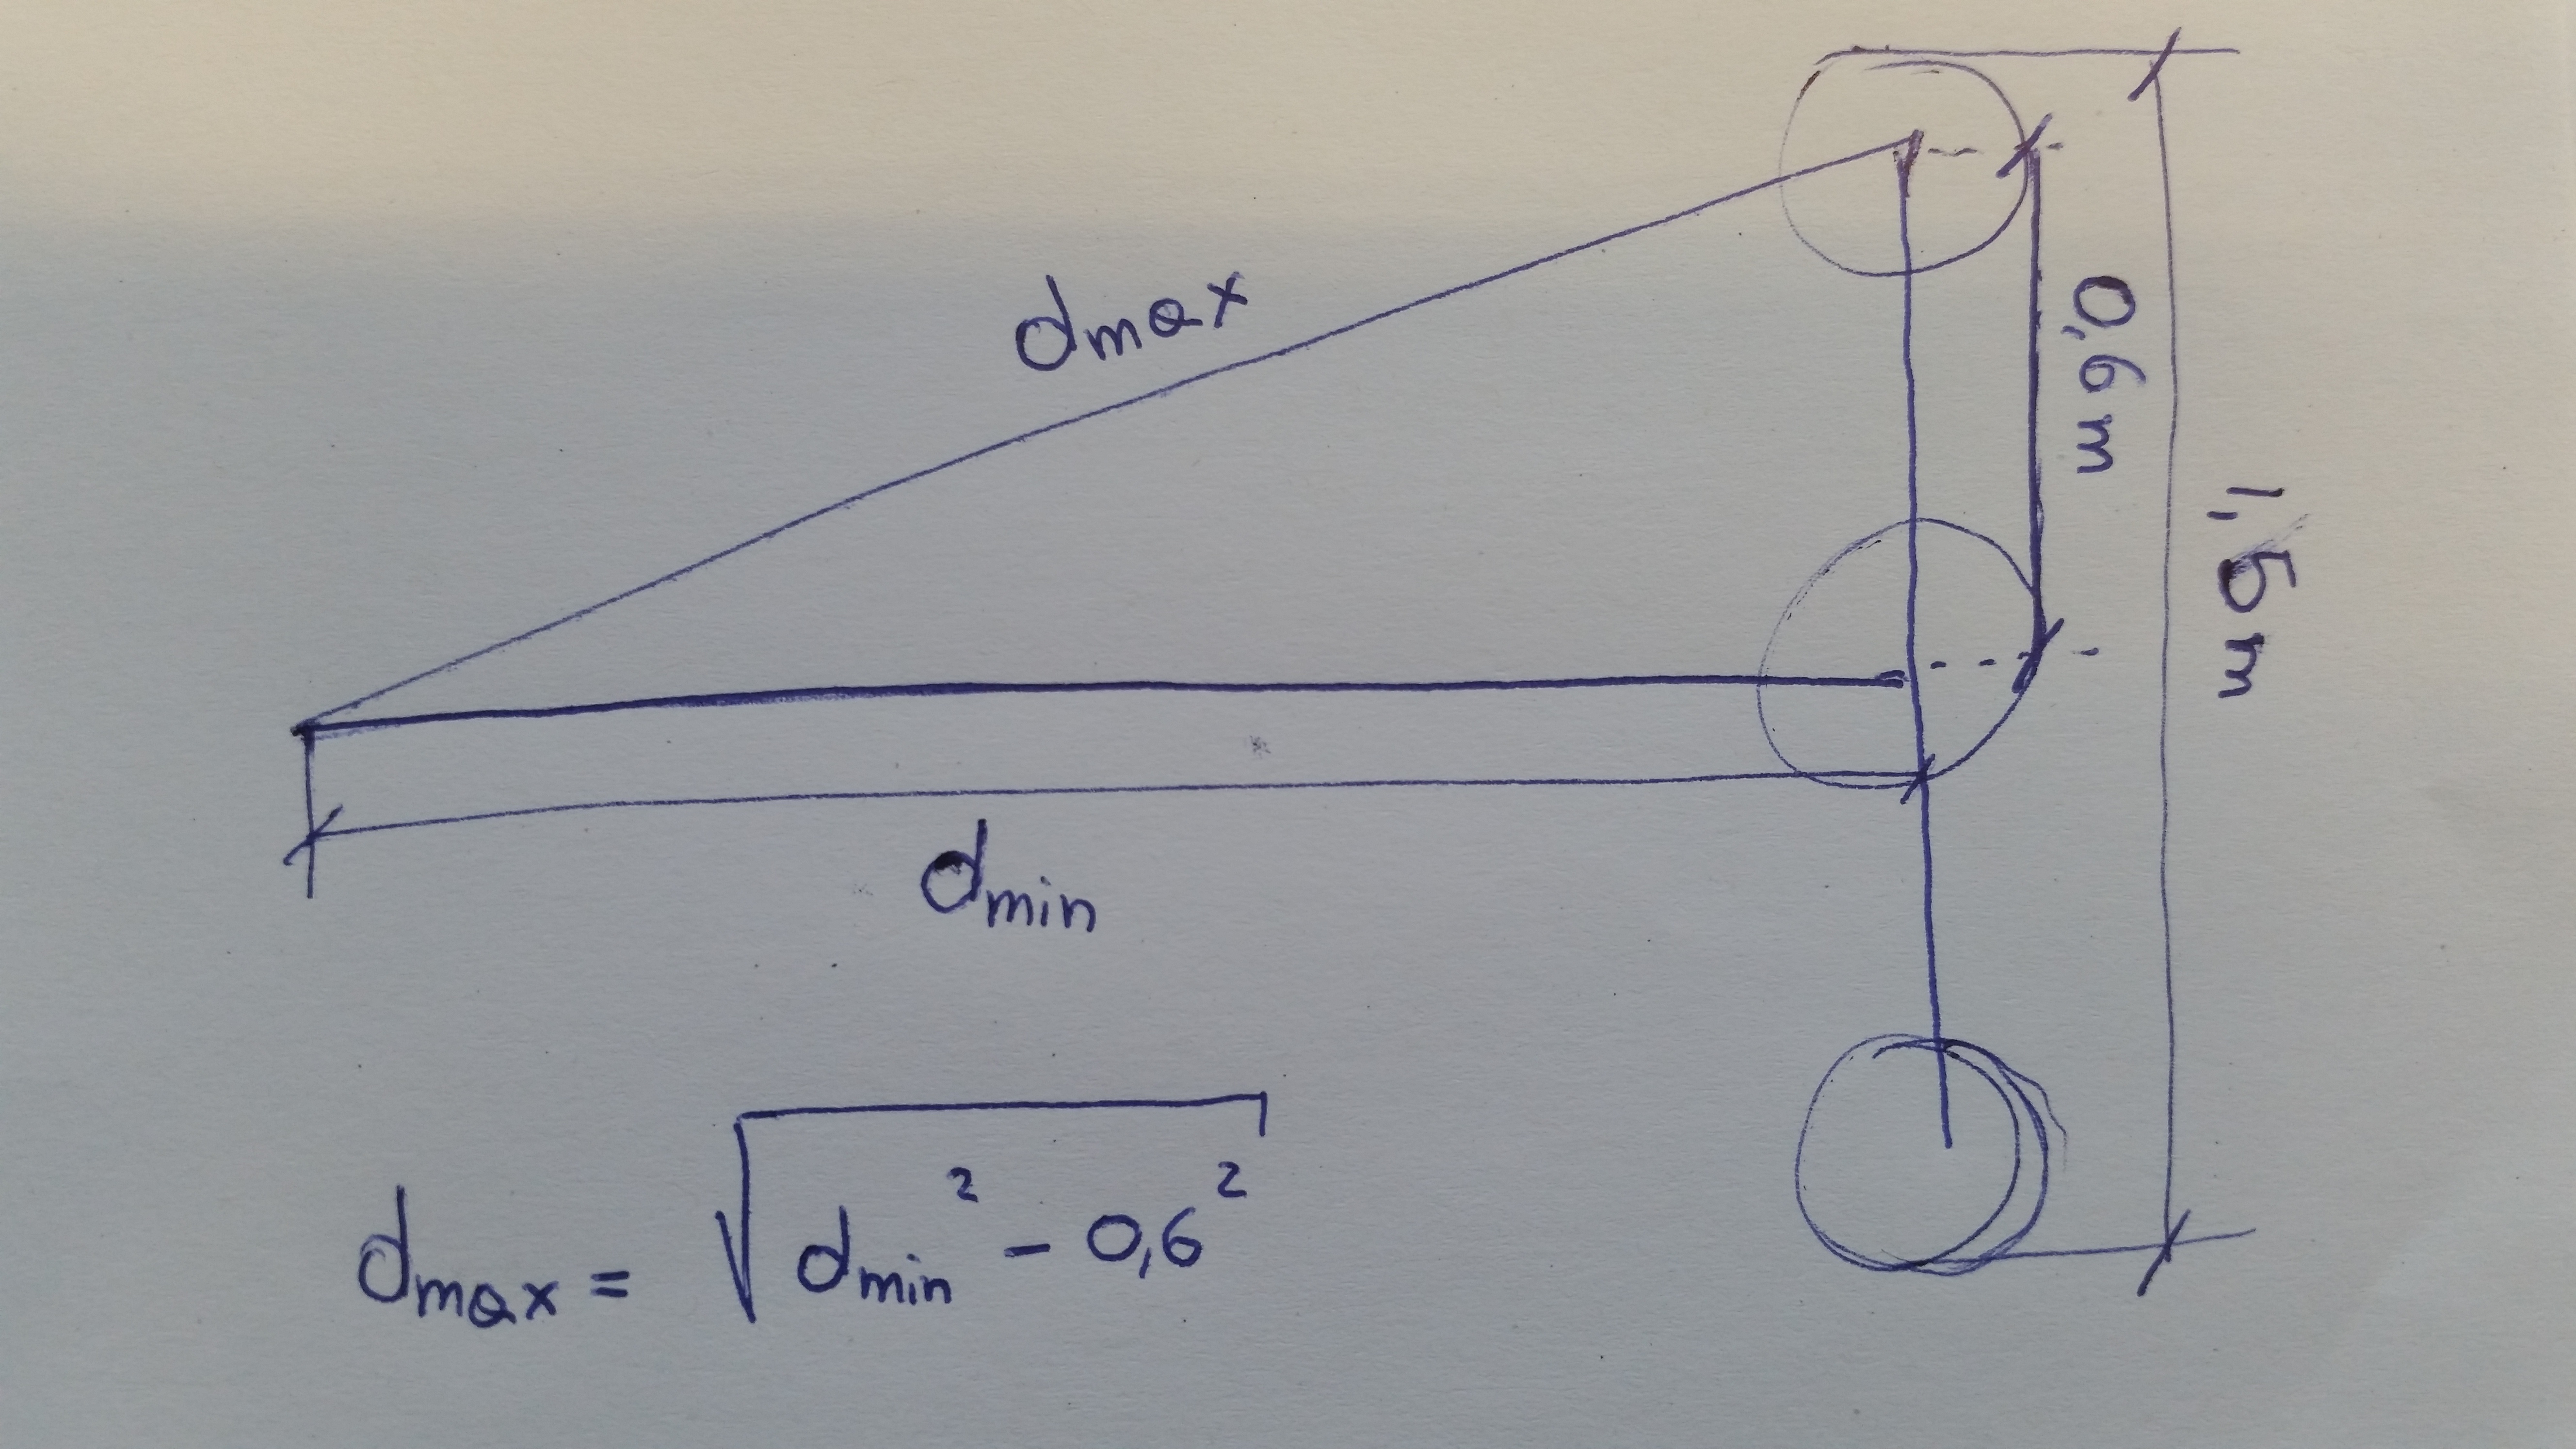 dmax
0,6 m
1,5 m
dmin
dmax = √dmin² - 0,6²